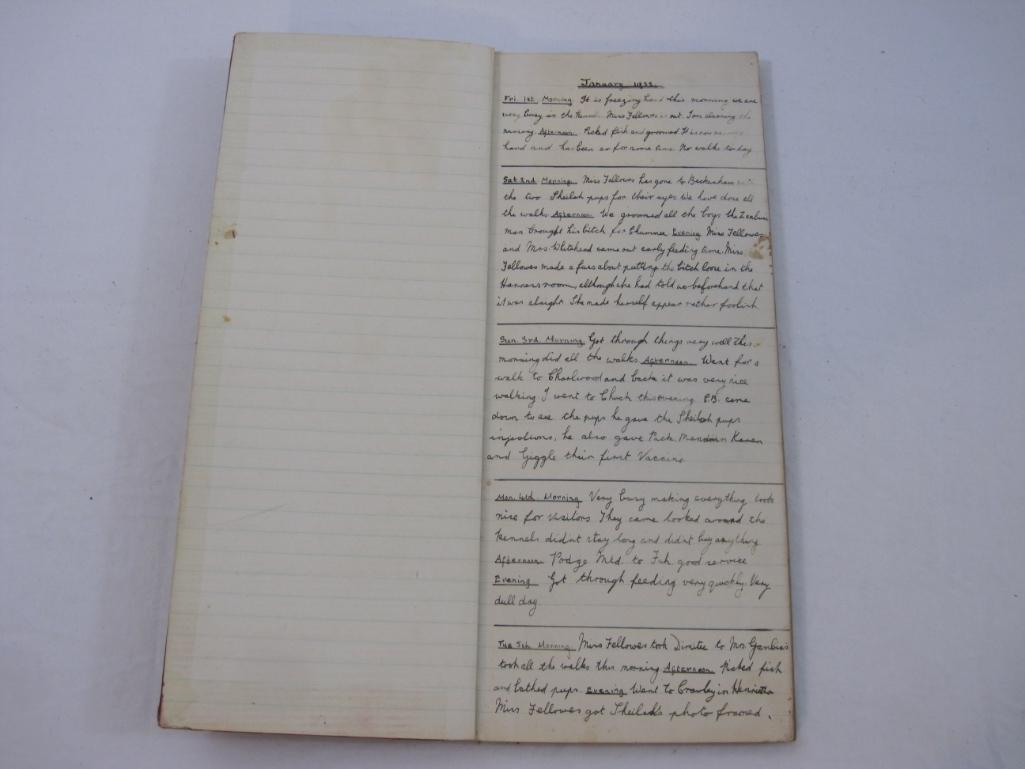 January 1932.
Fri. 1st. Morning It is freezing hard this morning we are
very busy in the Miss Fellowes is out. I am cleaning the
morning. Afternoon. Picked fish and groomed
hard and has been so for some time. No walks today
Sat 2nd Morning. Miss Fellowes has gone to Beckenham with
the two Sheilah pups for their eyes We have done all
the walks Afternoon We groomed all the boys the
man brought his bitch for Evening Miss Fellowes
and Mrs Whitehead came out early feeding time. Miss
Fellowes made a fuss about putting the bitch loose in the
room, although she had told us beforehand that
it was alright She made herself appear rather foolish
Sun. 3rd. Morning Got through things very well this
morning did all the walks Afternoon Went for a
walk to Charlwood and back it was very nice
walking I went to Church this evening P.B. came
down to see the pups he gave the Sheilah pups
injections, he also gave Puck Karen
and Giggle their first Vaccine
Mon. 4th. Morning Very busy making everything look
nice for visitors They came looked around the
kennels didnt stay long and didnt buy anything
Afternoon Podge Mtd. to good service
Evening Got through feeding very quickly. Very
dull day
Tue 5th. Morning. Miss Fellowes took to Mrs
took all the walks this morning Afternoon Picked fish
and bathed pups Evening Went to Crawley in Henrietta
Miss Fellowes got Sheilah's photo framed.